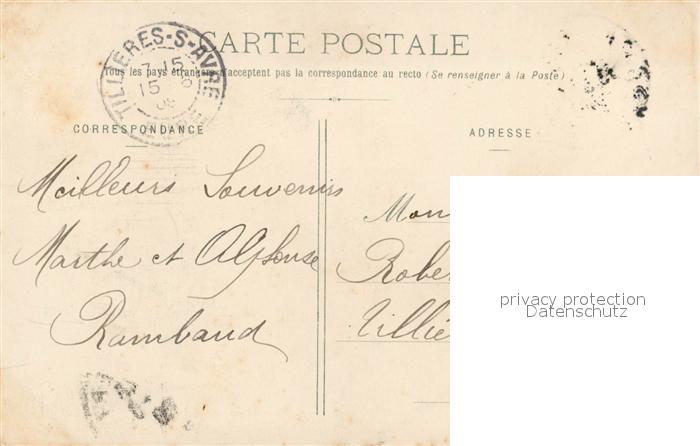 CARTE POSTALE
Tous les pays étrangers n'acceptent pas la correspondance au recto (Se renseigner à la Poste)
TILLIERES-S-AVRE
7 15
15
EURE
CORRESPONDANCE
Meilleurs Souvenirs
Marthe et Alphonse
Rambaud
ADRESSE
Mon
Robe
Villiè
privacy protection
Datenschutz